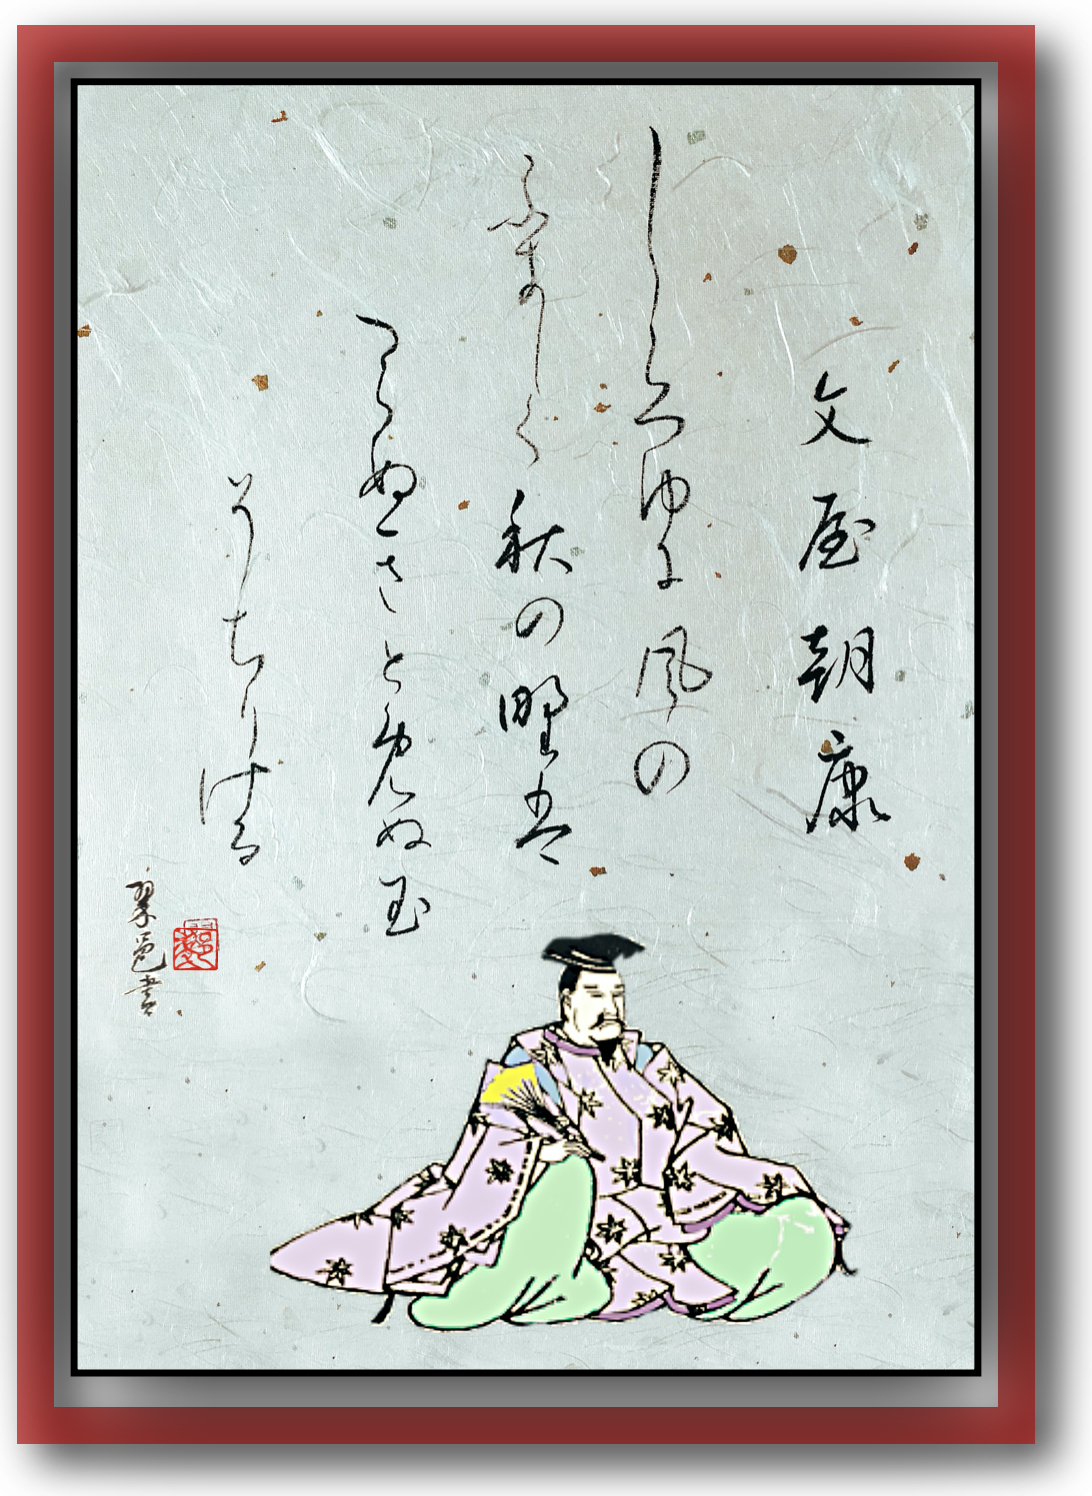 文屋朝康
しらつゆに風の
ふきしく秋の野は
つらぬきとめぬ玉
そちりける
翠邑書